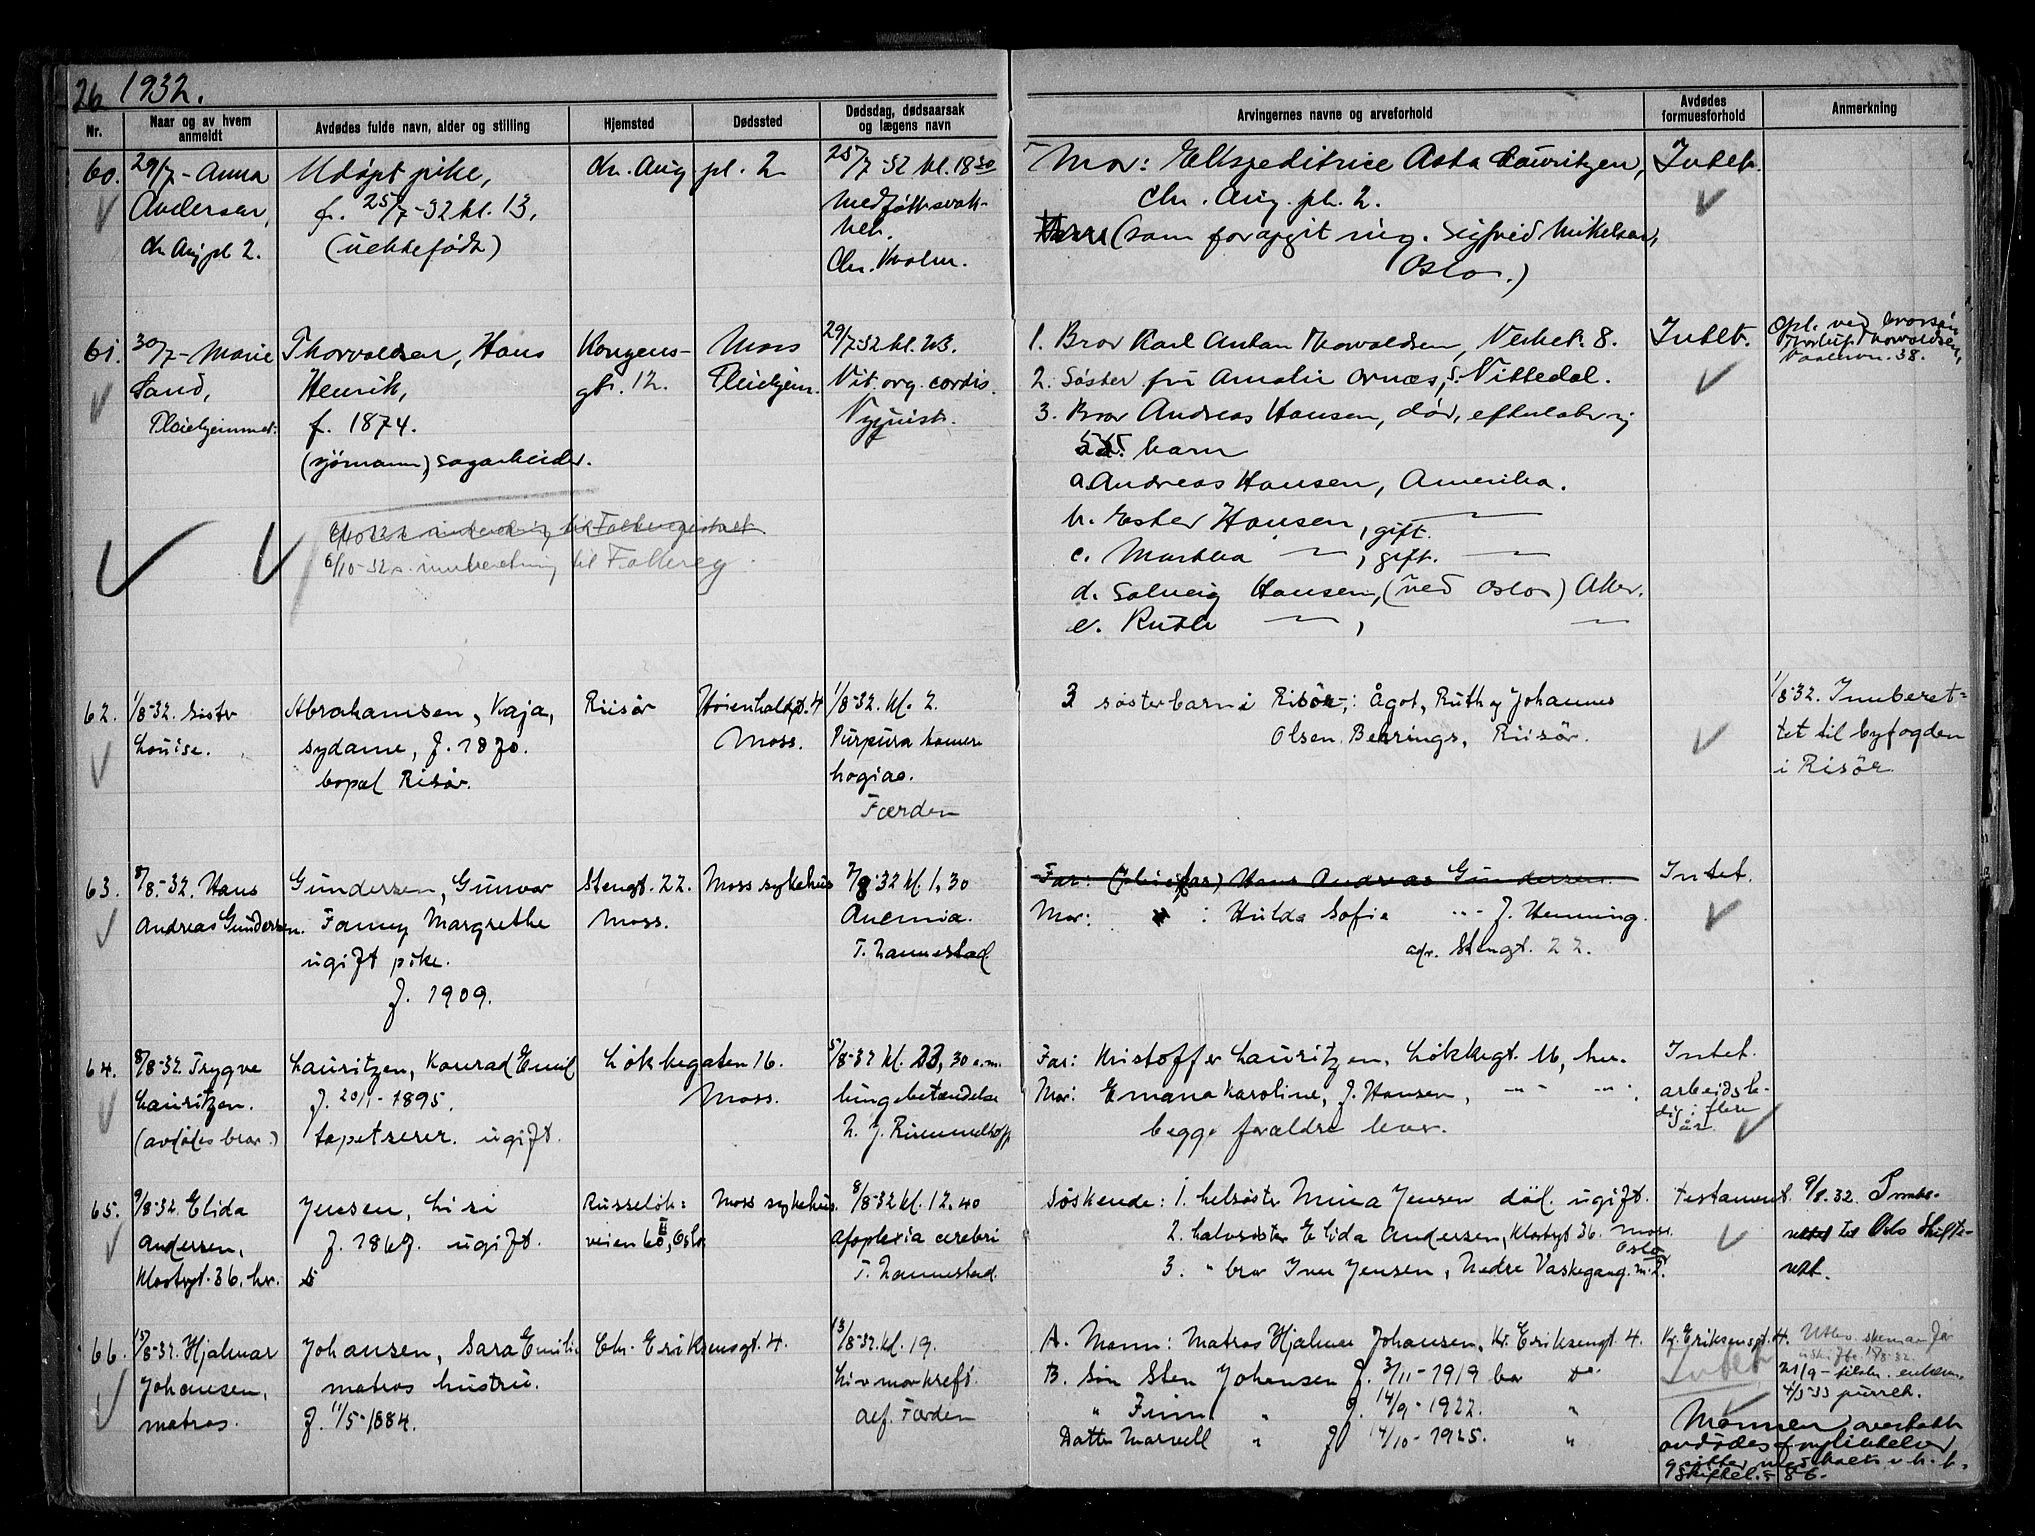 26 1932.
Nr.
Naar og av hvem anmeldt
Avdødes fulde navn, alder og stilling
Hjemsted
Dødssted
Dødsdag, dødsaarsak og lægens navn
Arvingernes navne og arveforhold
Avdødes formuesforhold
Anmerkning
60.
29/7 - Anna
Andersen,
chr. Aug. pl. 2.
Udøpt pike,
f. 25/7-32 kl. 13.
(uektefødt)
chr. Aug. pl. 2
25/7-32 kl. 18 30
Medføtt svak-
het.
Chr. Kvolm.
Mor: Ekspeditrice Asta Lauritzen,
chr. Aug. pl. 2.
(som far opgit ing. Sigfred Mikelsen,
Oslo.)
Intet.
61.
30/7 - Marie
Sand,
Pleiehjemmet.
Thorvaldsen, Hans
Henrik,
f. 1874.
(sjømann), sagarbeider.
Kongens-
gt. 12.
Moss
Pleiehjem.
29/7-32 kl. 23.
Vit. org. cordis.
Nyquist.
1. Bror Karl Anton Thorvaldsen, Verket 8.
2. Søster fru Amalie Ornæs, Nittedal.
3. Bror Andreas Hansen, død, efterlater sig
5 barn
a. Andreas Hansen, Amerika.
b. Ester Hansen, gift. —
c. Martha — , gift. —
d. Solveig Hansen, (ved Oslo) Aker.
e. Ruth — , —
Intet.
Opl. ved brorsøn
Thorleif Thorvaldsen,
Vaalervn. 38.
6/10-32 s. innberetning til Folkereg.
62.
1/8-32. Sister
Louise.
Abrahamsen, Kaja,
sydame, f. 1870.
bopæl Risør.
Risør
Høienholdgt. 4
Moss.
1/8-32. kl. 2.
Purpura hæmor
hagiae.
Færden
3 søsterbarn i Risør: Ågot, Ruth og Johannes
Olsen Berrings, Risør.
1/8-32. Innberet-
tet til byfogden
i Risør
63.
8/8-32. Hans
Andreas Gundersen.
Gundersen, Gunvor
Fanny Margrethe
ugift pike.
f. 1909.
Stengt. 22.
Moss.
Moss sykehus
7/8-32 kl. 1,30
Anemia.
T. Lannestad.
Far: (pleiefar) Hans Andreas Gundersen.
Mor: : Hulda Sofie —"— f. Henning.
adr. Stengt. 22.
Intet.
64.
8/8-32. Trygve
Lauritzen.
(avdødes bror.)
Lauritzen, Konrad Emil
f. 20/1-1895.
tapetserer. ugift.
Løkkegaten 16.
Moss.
5/8-32 kl. 23,30 e.m.
lungebetændelse
Far: Kristoffer Lauritzen, Løkkegt. 16, her.
Mor: Emana Karoline, f. Hansen, —"—
begge forældre lever.
Intet.
arbeidsle-
dig i flere
år.
65.
9/8-32. Elida
Andersen,
Klostergt. 36. her.
Jensen, Lisi
f. 1867. ugift.
Russeløk-
veien 60 II, Oslo
Moss sykehus.
8/8-32 kl. 12.40
apoplexia cerebri
T. Lannestad.
Søskende: 1. helsøster Mina Jensen død. ugift.
2. halvsøster Elida Andersen, Klostergt 36. Moss.
3. " bror Iver Jensen, Nedre Vaskegang. nr. 2. Oslo
Testament.
9/8.32. Innbe-
rettet til Oslo Skifte-
rett.
66.
15/8-32. Hjalmar
Johansen,
matros.
Johansen, Sara Emilie
matros hustru.
f. 11/5-1884.
Chr. Eriksensgt. 4.
13/8-32. kl. 19.
Livmorkreft.
Alf. Færden
A. Mann: Matros Hjalmar Johansen, Kr. Eriksengt 4.
B. Søn Sten Johansen f. 3/11-1919 bor do
" Finn " f. 14/9-1922. "
Datter Marvell " f 14/10-1925. "
Kr. Eriksensgt. 4.
Intet
Utlev. skema
uskifte 15/8-32.
4/3-33 purret.
Mannen overtokk
avdødes forpliktelser